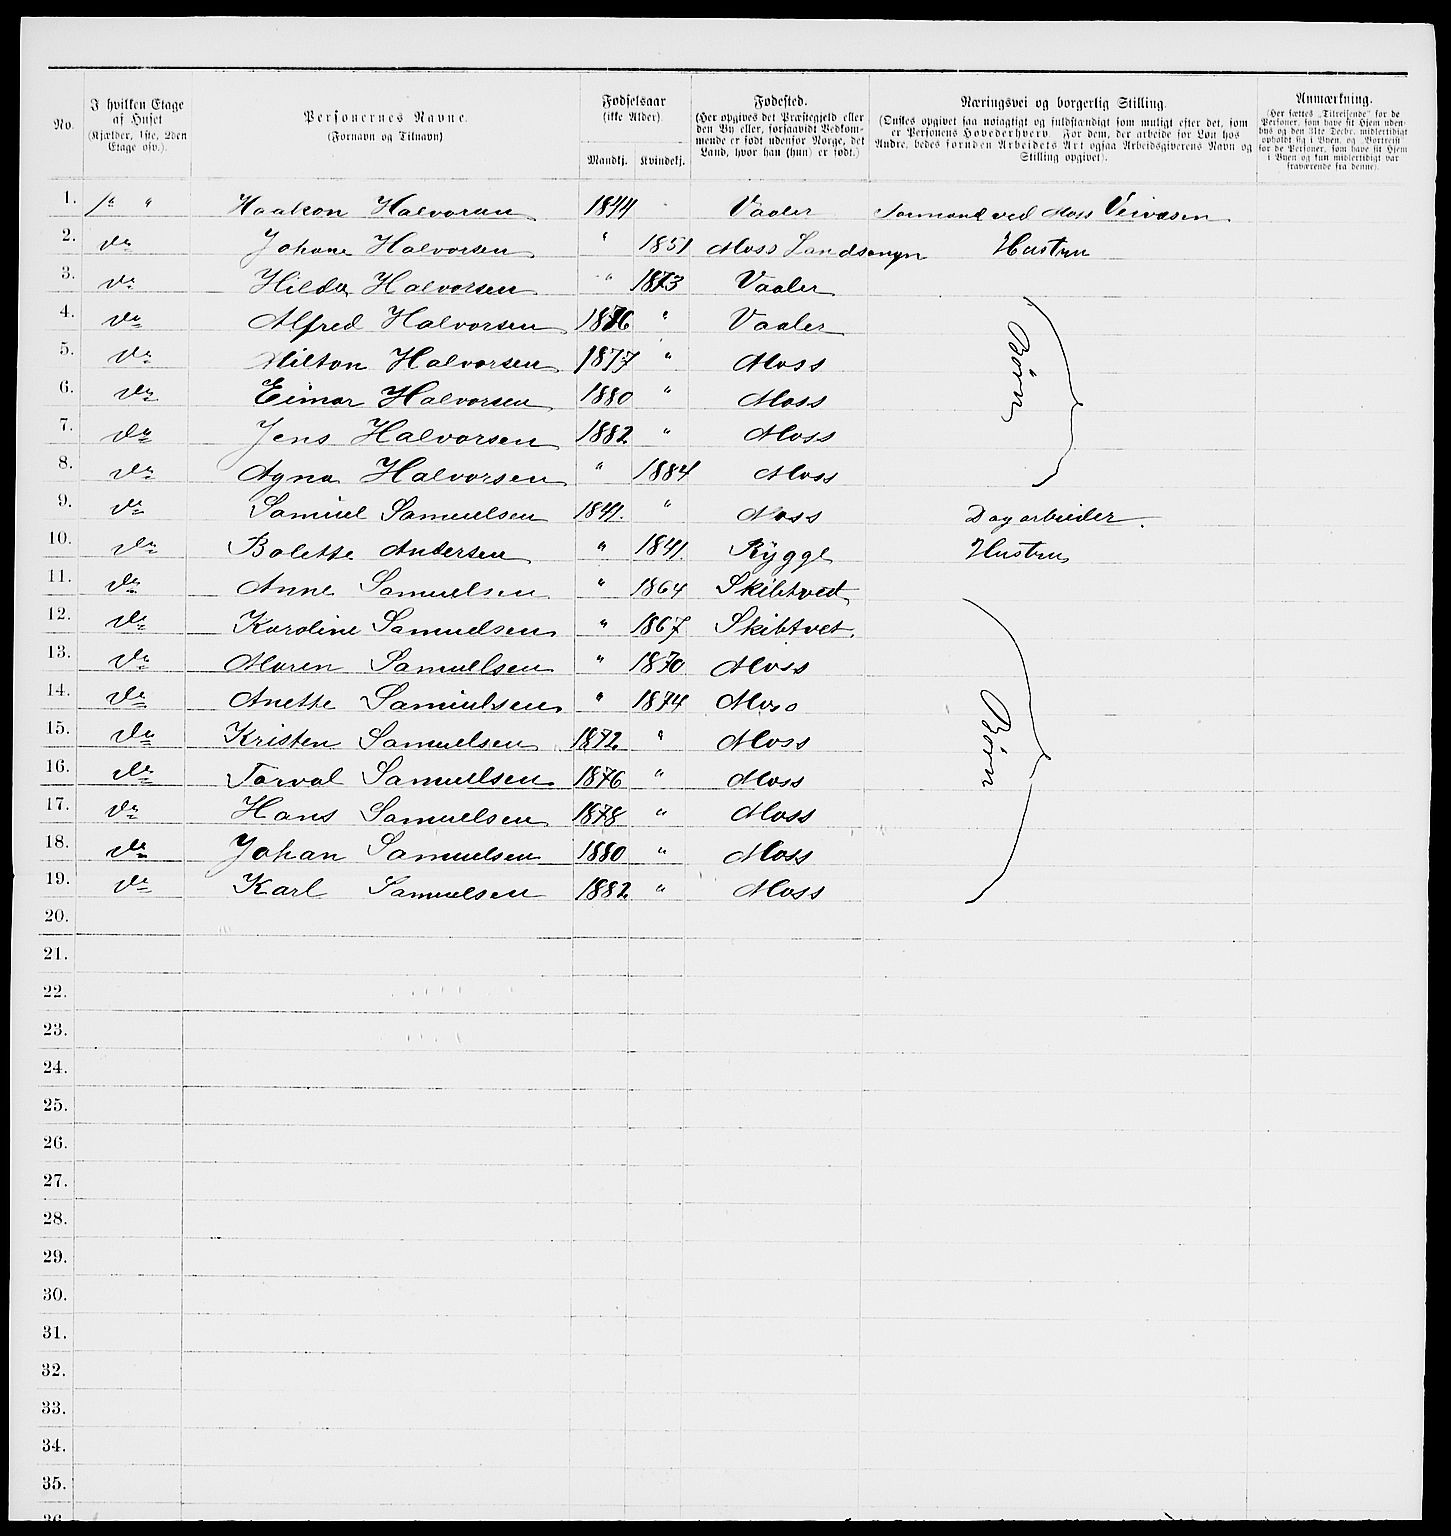 No. | I hvilken Etage af Huset (Kjælder, 1ste, 2den Etage osv.). | Personernes Navne. (Fornavn og Tilnavn) | Fødselsaar (ikke Alder) Mandkj. | Kvindekj. | Fødested. (Her opgives det Præstegjeld eller den By eller, forsaavidt Vedkommende er født udenfor Norge, det Land, hvor han (hun) er født.) | Næringsvei og borgerlig Stilling. (Ønskes opgivet saa nøiagtigt og fuldstændigt som muligt efter det, som er Personens Hovederhverv. For dem, der arbeide for Løn hos Andre, bedes foruden Arbeidets Art ogsaa Arbeidsgiverens Navn og Stilling opgivet). | Anmærkning. (Her sættes „Tilreisende“ for de Personer, som have sit Hjem udenbys og den 31te Decbr. midlertidigt opholdt sig i Byen, og „Bortreist“ for de Personer, som have sit Hjem i Byen og kun midlertidigt var fraværende fra denne).
1. 1ste " Haakon Halvorsen 1844 Vaaler Formand ved Moss Veivæsen
2. do Johane Halvorsen " 1851 Moss Landsogn Hustru
3. do Hilda Halvorsen " 1873 Vaaler
4. do Alfred Halvorsen 1876 " Vaaler
5. do Milton Halvorsen 1877 " Moss
Børn
6. do Eimar Halvorsen 1880 " Moss
7. do Jens Halvorsen 1882 " Moss
8. do Agna Halvorsen " 1884 Moss
9. do Samuel Samuelsen 1841. " Moss Dagarbeider.
10. do Bolette Andersen " 1841. Rygge Hustru
11. do Anne Samuelsen " 1864 Skibtved
12. do Karoline Samuelsen " 1867 Skibtvet.
13. do Maren Samuelsen " 1870 Moss
14. do Anette Samuelsen " 1874 Moss
Børn
15. do Kristen Samuelsen 1872 " Moss
16. do Torval Samuelsen 1876 " Moss
17. do Hans Samuelsen 1878 " Moss
18. do Johan Samuelsen 1880 " Moss
19. do Karl Samuelsen 1882 " Moss
20.
21.
22.
23.
24.
25.
26.
27.
28.
29.
30.
31.
32.
33.
34.
35.
36